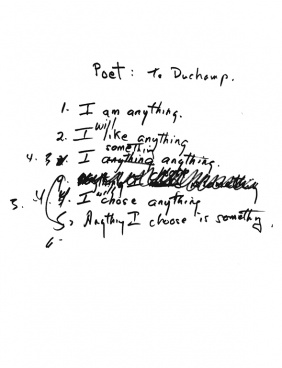 Poet : to Duchamp.
1. I am anything.
will
2. I like anything
somethin
4. 3 I anything anything.
will
3. 4 4. I chose anything
5. Anything I choose is something.
6-